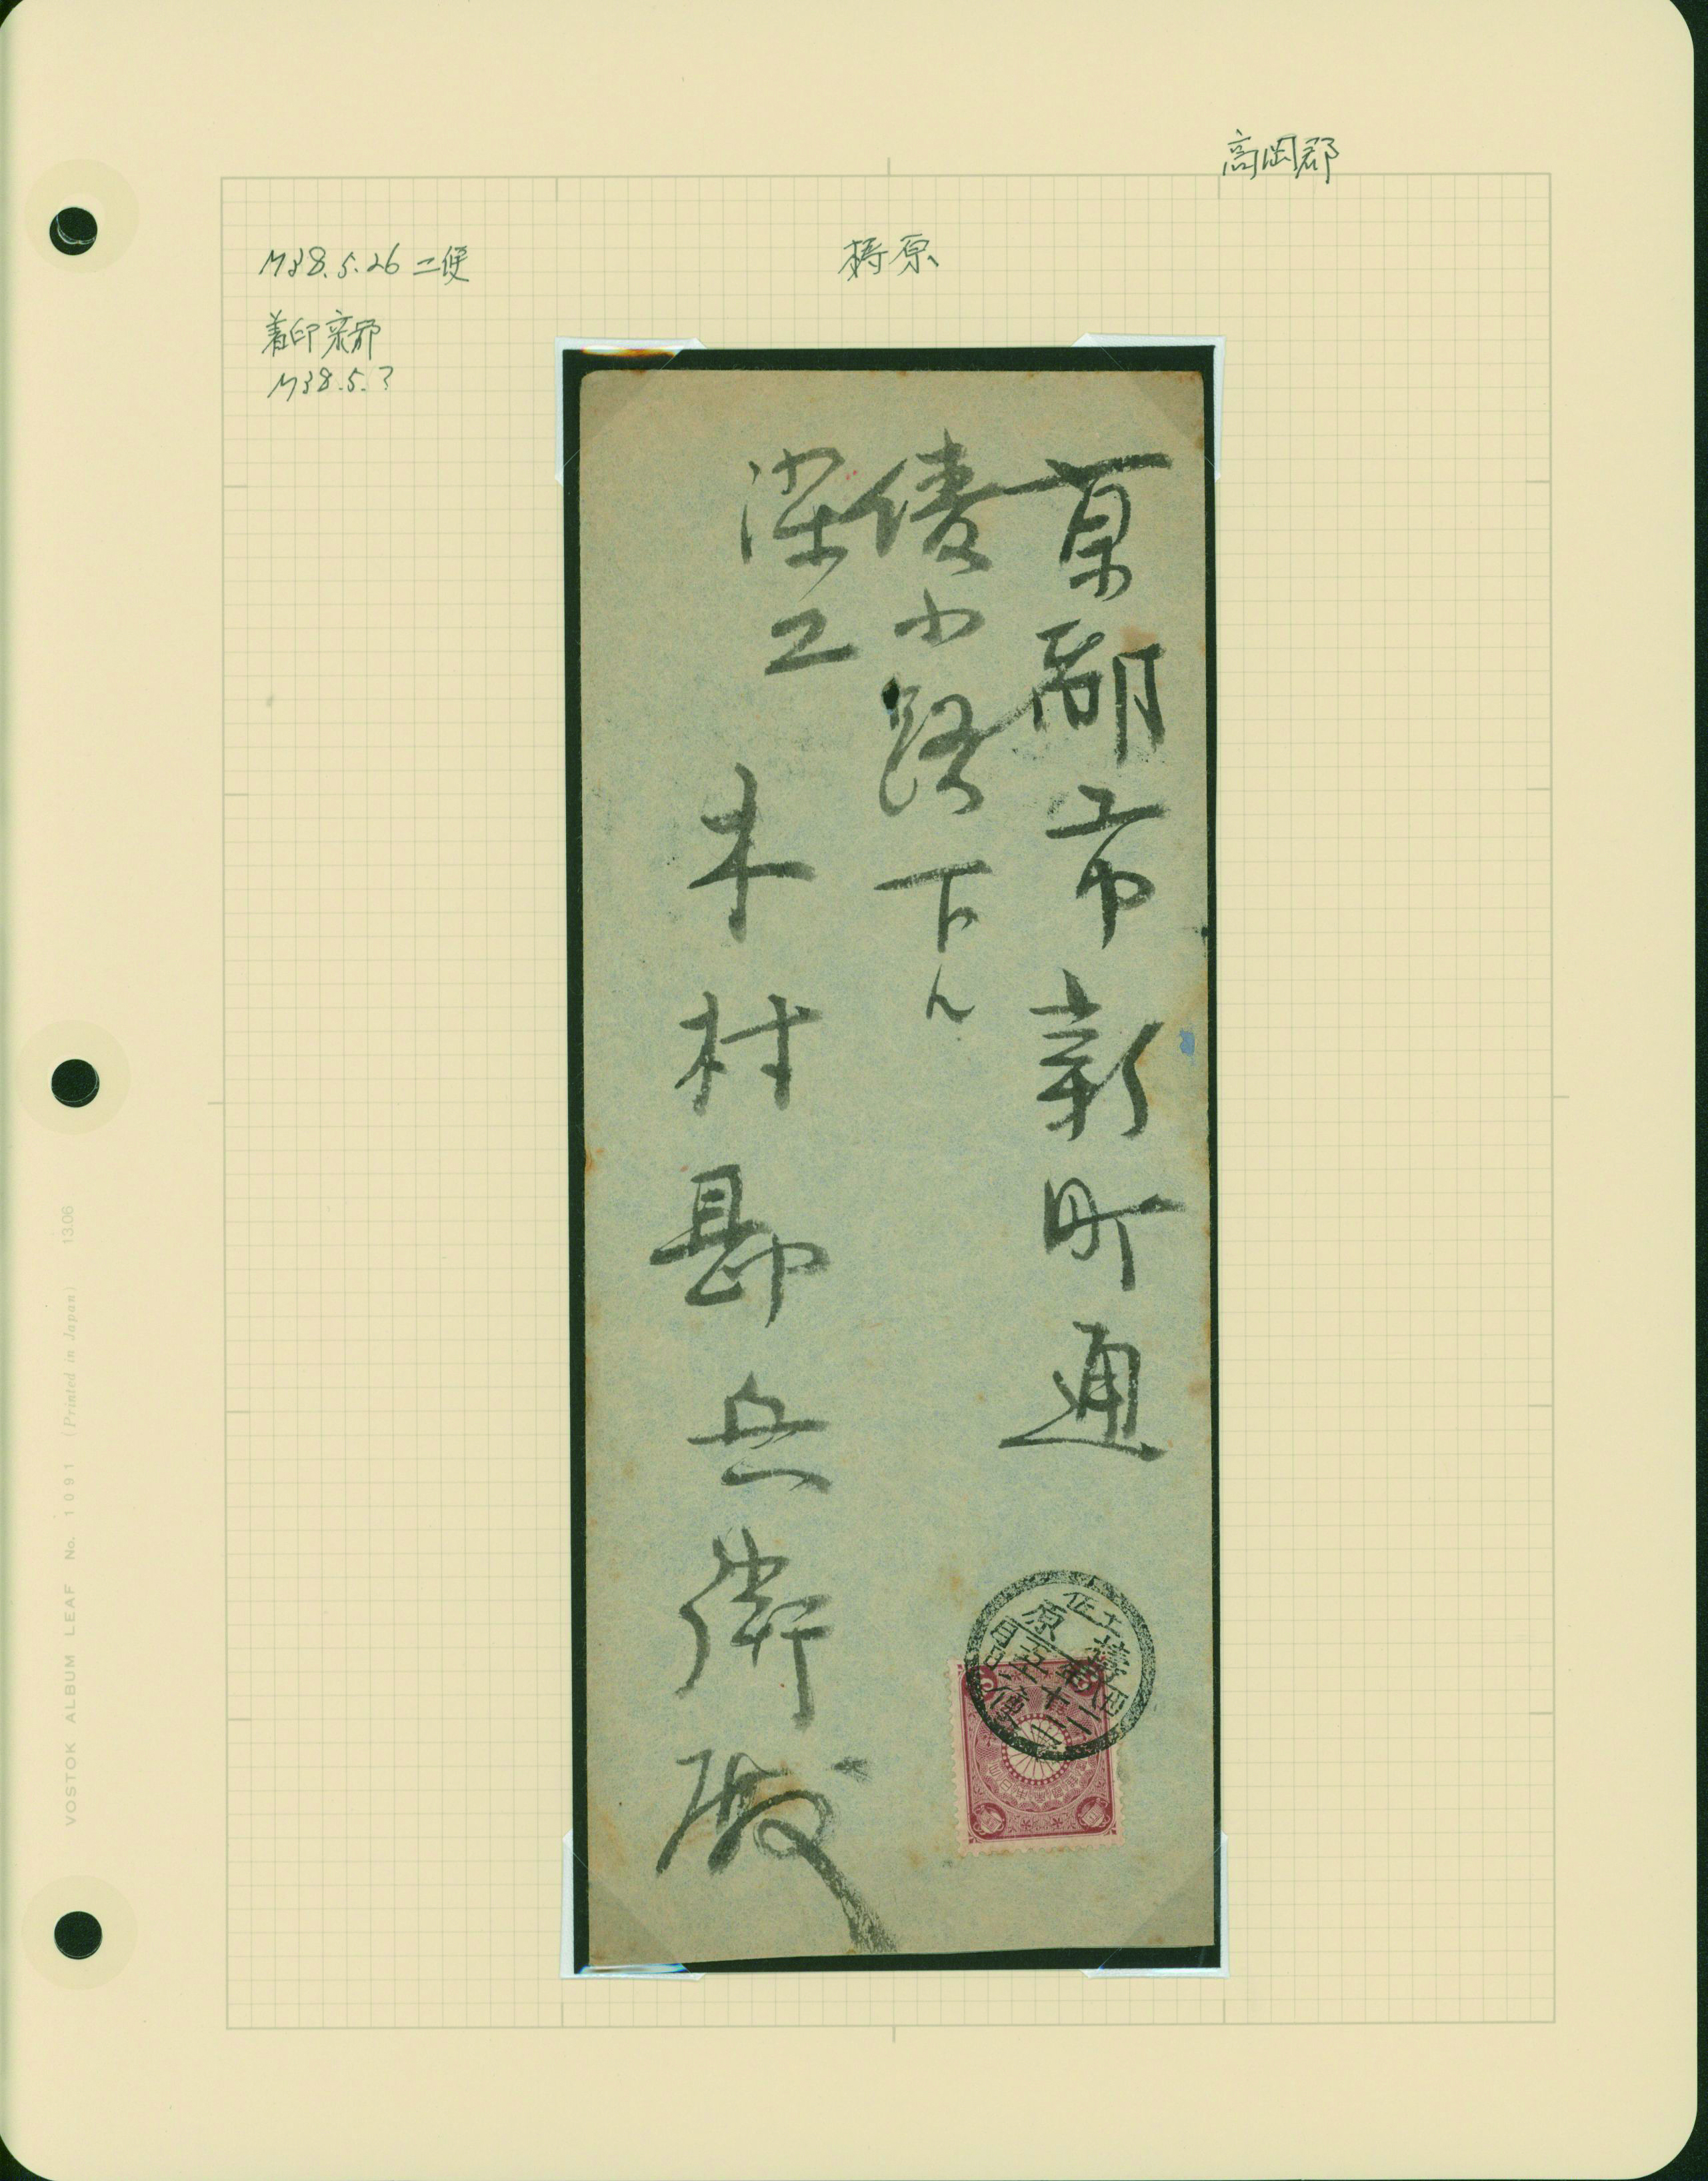 高岡郡
梼原
M38.5.26 二便
着印京都
M38.5.?
京都市新町通
綾小路下ル
染工
木村勘兵衛殿
土佐
梼原
二便
VOSTOK ALBUM LEAF No. 1091 (Printed in Japan) 13.06